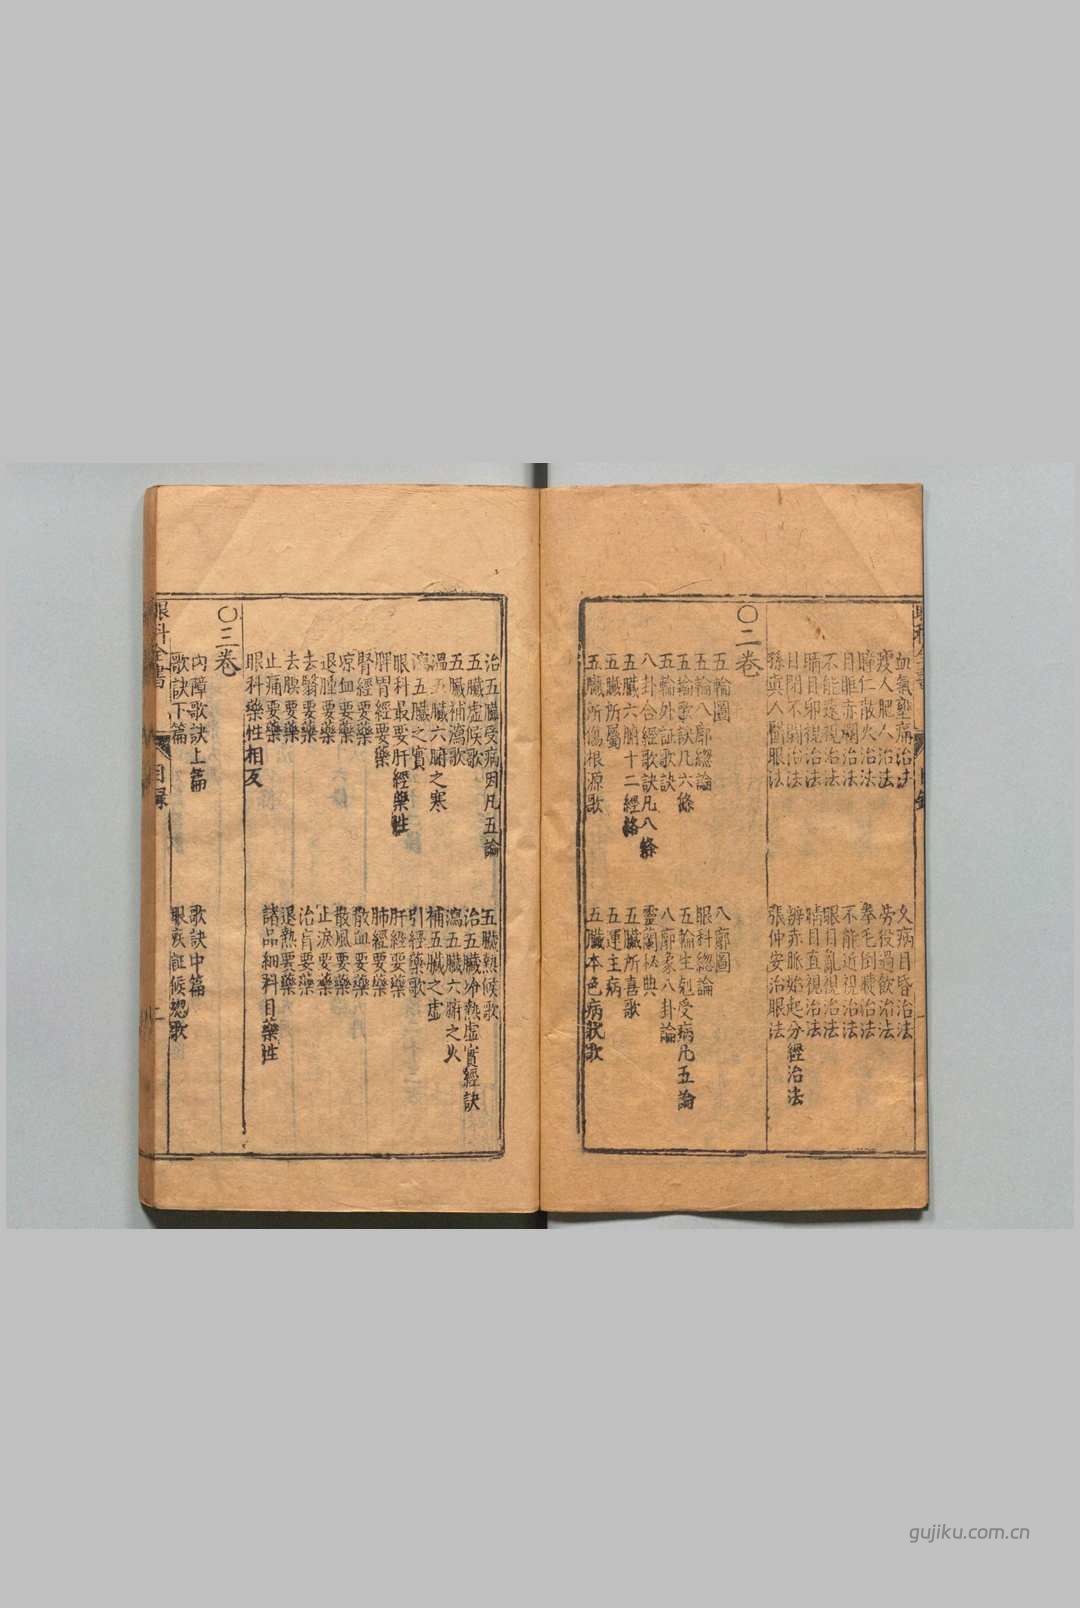 血氣壅痛治法 久病目昏治法
瘦人肥人治法 勞役過飲治法
瞳仁散火治法 拳毛倒睫治法
目眶赤爛治法 不能近視治法
不能遠視治法 眼目亂視治法
視治法 睛目直視治法
目閉不開治法 辨赤脈始起分經治法
孫真人醫眼法 張仲安治眼法
〇二卷
五輪圖 八廓圖
五輪八廓總論 眼科總論
五輪歌訣凡六條 五輪生剋受病凡五論
五輪外証歌訣 八廓象八卦論
八卦合經歌訣凡八條 靈蘭秘典
五臟六腑十二經絡 五臟所喜歌
五臟所屬 五運主病
五臟所傷根源歌 五臟本色病狀歌
治五臟受病因凡五論 五臟熱候歌
五臟虛候歌 治五臟冷熱虛實經訣
五臟補瀉歌 瀉五臟六腑之火
溫五臟六腑之寒 補五臟之虛
瀉五臟之實 引經藥歌
眼科最要肝經藥性 肝經要藥
脾胃經要藥 肺經要藥
腎經要藥 散血要藥
凉血要藥 散風要藥
退腫要藥 止淚要藥
去翳要藥 治盲要藥
去膜要藥 退熱要藥
止痛要藥 諸品細料目藥性
眼科藥性相反
〇三卷
內障歌訣上篇 歌訣中篇
歌訣下篇 眼疾証候總歌
眼科全書 目錄 二
gujiku.com.cn